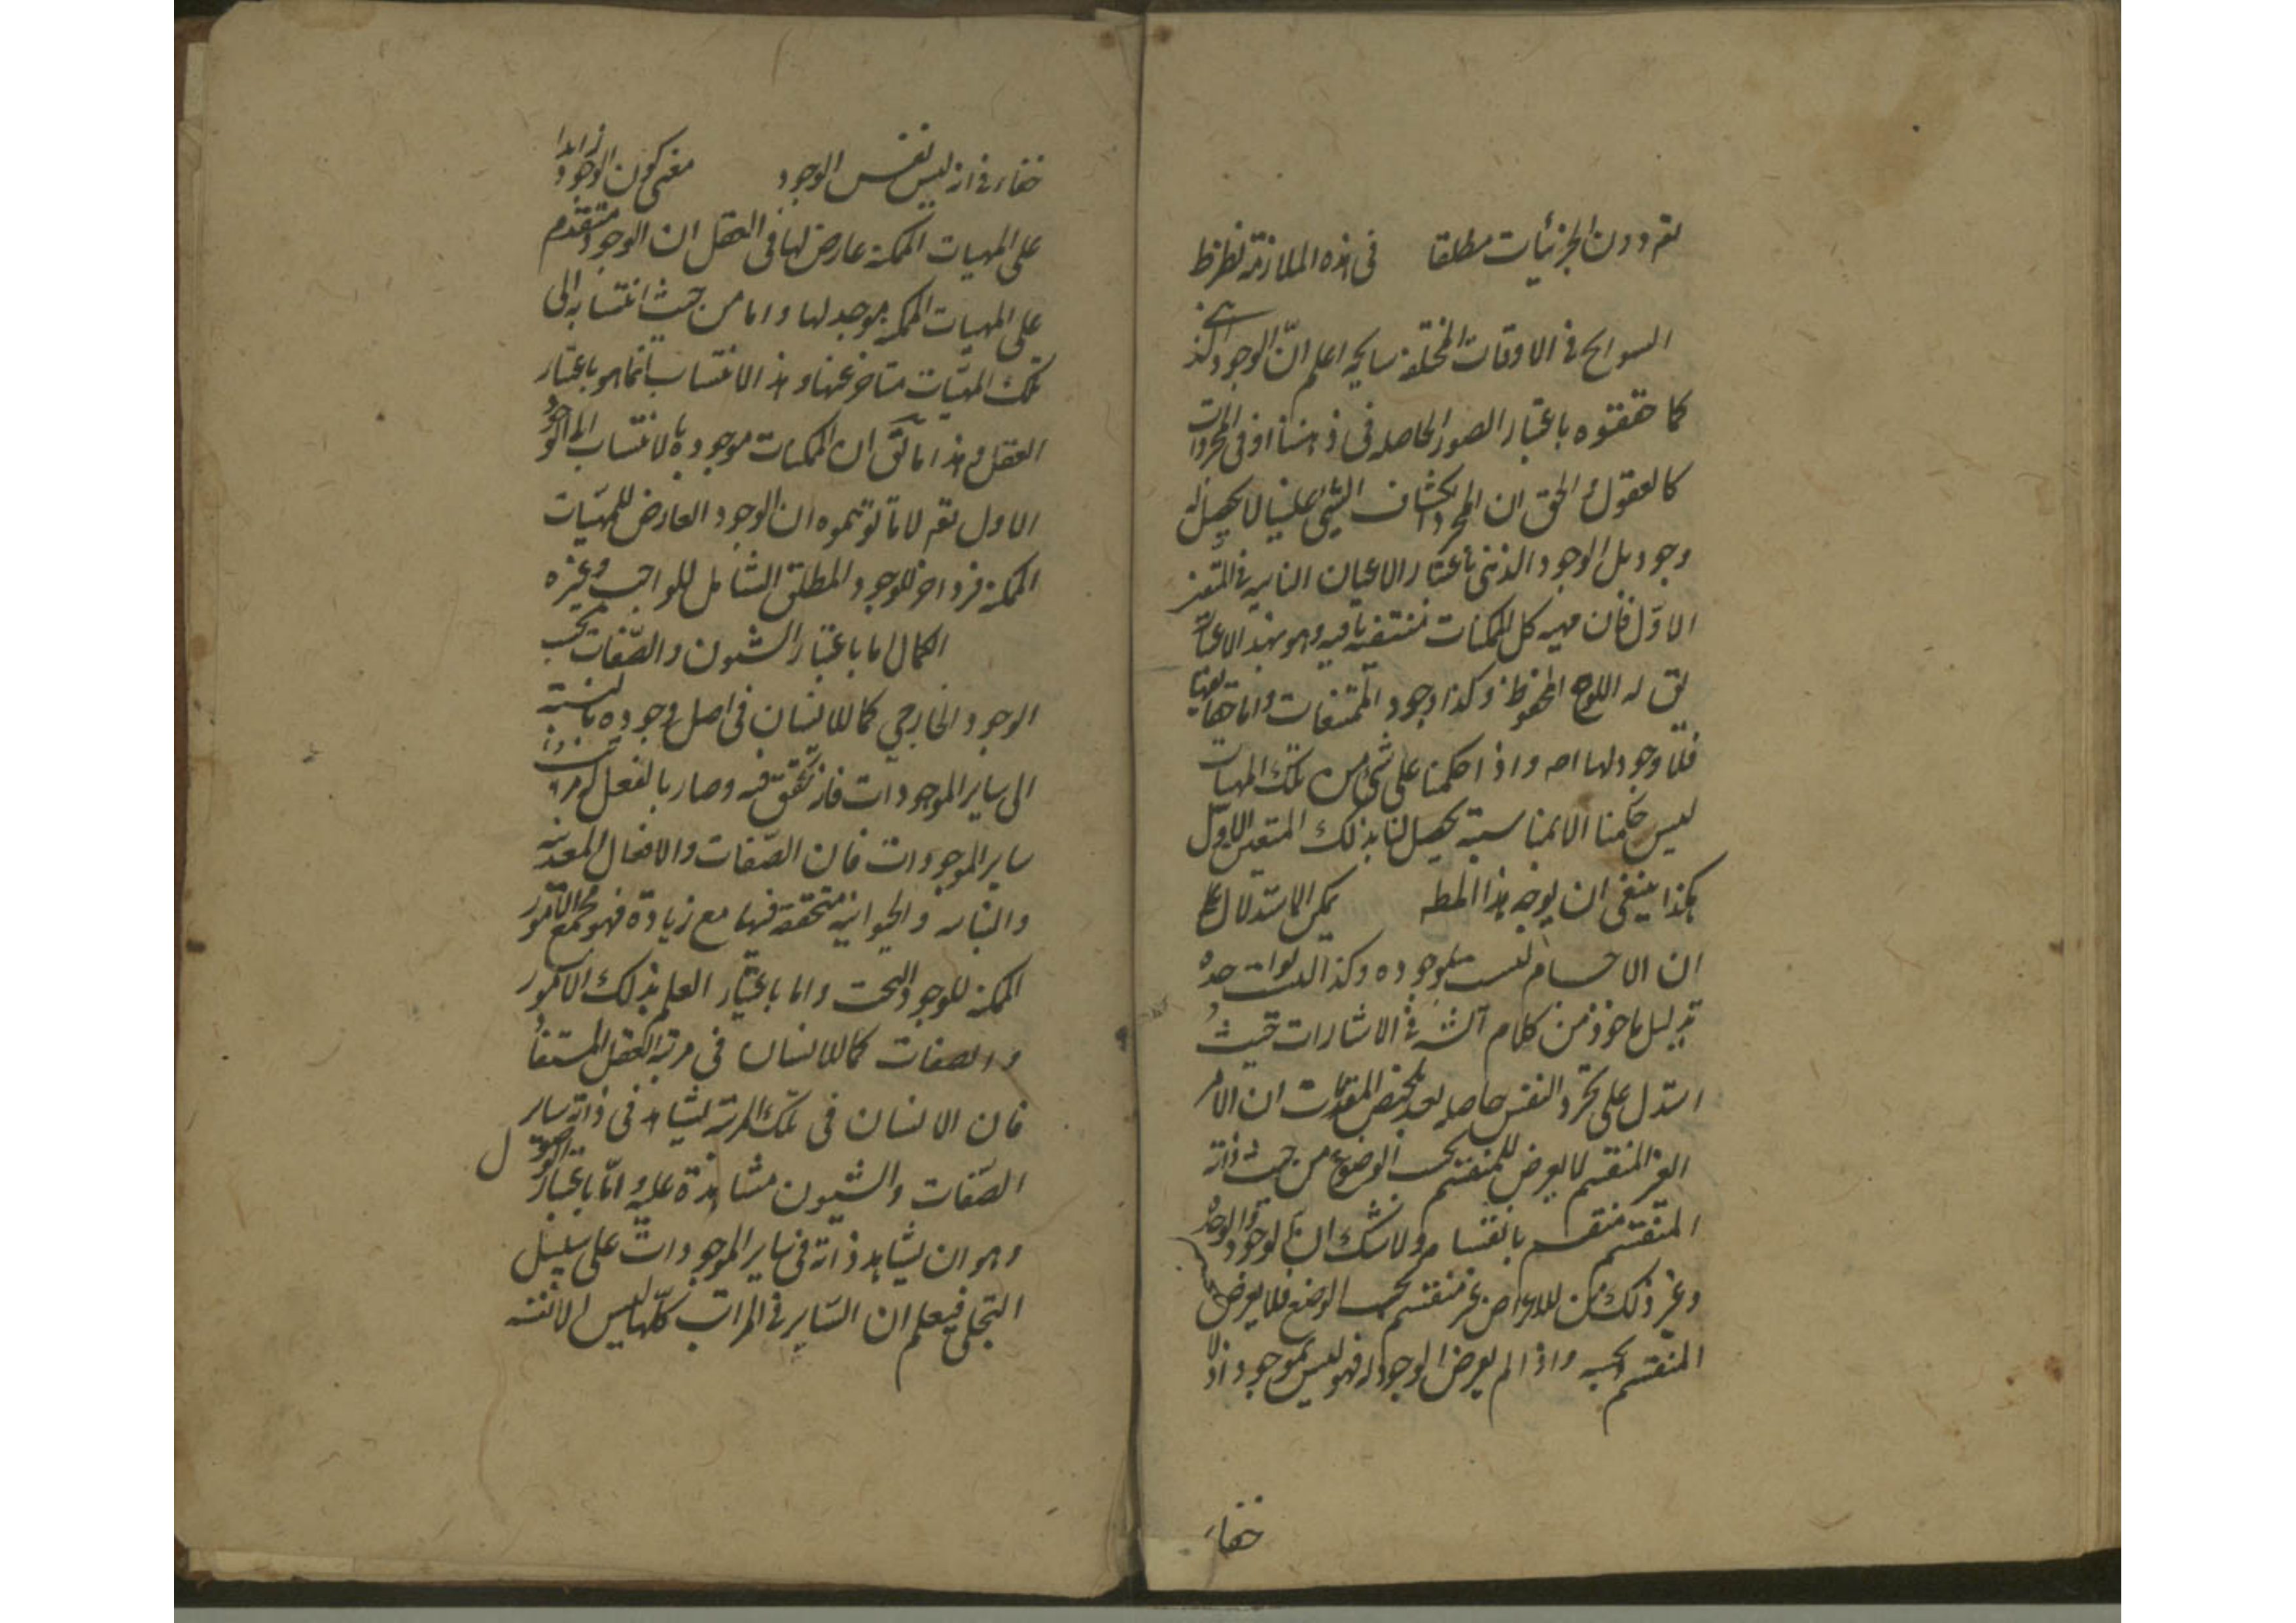 تقرر دون الجزئيات مطلقا في هذه الملازمة نظر ظ
السوانح في الاوقات المختلفة سانحه اعلم انّ الوجود الذهني
كما حققوه باعتبار الصور الحاصله في ذهننا او في المجردات
كالعقول و الحق ان المجرد انكشاف الشئ علينا لا يحصل له
وجود بل الوجود الذهني باعتبار الاعيان الثابته في التعين
الاوّل فان مهيه كل الممكنات منتقشة فيه وهو بهذا الاعتبار
يق له اللوح المحفوظ و كذا وجود الممتنعات واما حقايقها
فلا وجود لها اصلا و اذا حكمنا على شئ من تلك المهيات
ليس حكمنا الا بمناسبة يحصل لنا بذلك التعين الاوّل
هكذا ينبغي ان يوجه هذا المطلب يمكن الاستدلال على
ان الاجسام ليست بموجوده وكذا ليست واحده
بدليل ماخوذ من كلام الشيخ في الاشارات حيث
استدل على تجرد النفس حاصله بعد تلخيص المقدمات ان الامر
الغير المنقسم لا يعرض للمنقسم بحسب الوضع من حيث ذاته
المنقسم منقسم بانقسامه ولا شك ان الوجود والوحدة
وغير ذلك من الاعراض غير منقسم بحسب الوضع فلا يعرض
المنقسم بحسبه واذا لم يعرض الوجود له فهو ليس بموجود اذ لا
خفاء
خفاء في انه ليس نفس الوجود معنى كون الوجود زايدا
على المهيات الممكنة عارض لها في العقل ان الوجود متقدم
على المهيات الممكنة موجد لها و اما من حيث انتسابه الى
تلك المهيّات متاخر عنها و هذا الانتساب انما هو باعتبار
العقل و هذا ما يق ان الممكنات موجودة بالانتساب الى الوجود
الاول نعم لا ما توهموه ان الوجود العارض للمهيّات
الممكنة فرد اخر للوجود المطلق الشامل للواجب وغيره
الكمال اما باعتبار الشئون والصّفات بحسب
الوجود الخارجي كما للانسان في اصل وجوده بالنسبة
الى ساير الموجودات فانه تحقق فيه وصار بالفعل
ساير الموجودات فان الصّفات والافعال المعدنيه
والنباتيه والحيوانيه متحققة فيها مع زيادة فهو مجمع الامور
الممكنة للوجود البحت واما باعتبار العلم بذلك الامور
والصفات كما للانسان في مرتبة العقل المستفاد
فان الانسان في تلك المرتبة يشاهد في ذاته ساير
الصّفات والشئون مشاهدة علميه و امّا باعتبار الوصول
وهو ان يشاهد ذاته في ساير الموجودات على سبيل
التجلي فيعلم ان السّاير في المراتب كلّها ليس الا نفسه